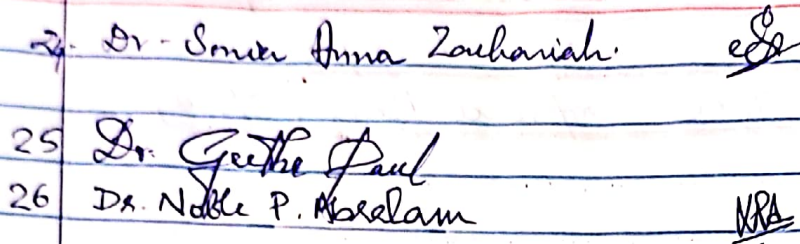 24. Dr. Sonia Anna Zachariah.
25 Dr. Geetha Paul
26 Dr. Noble P. Abraham NPA